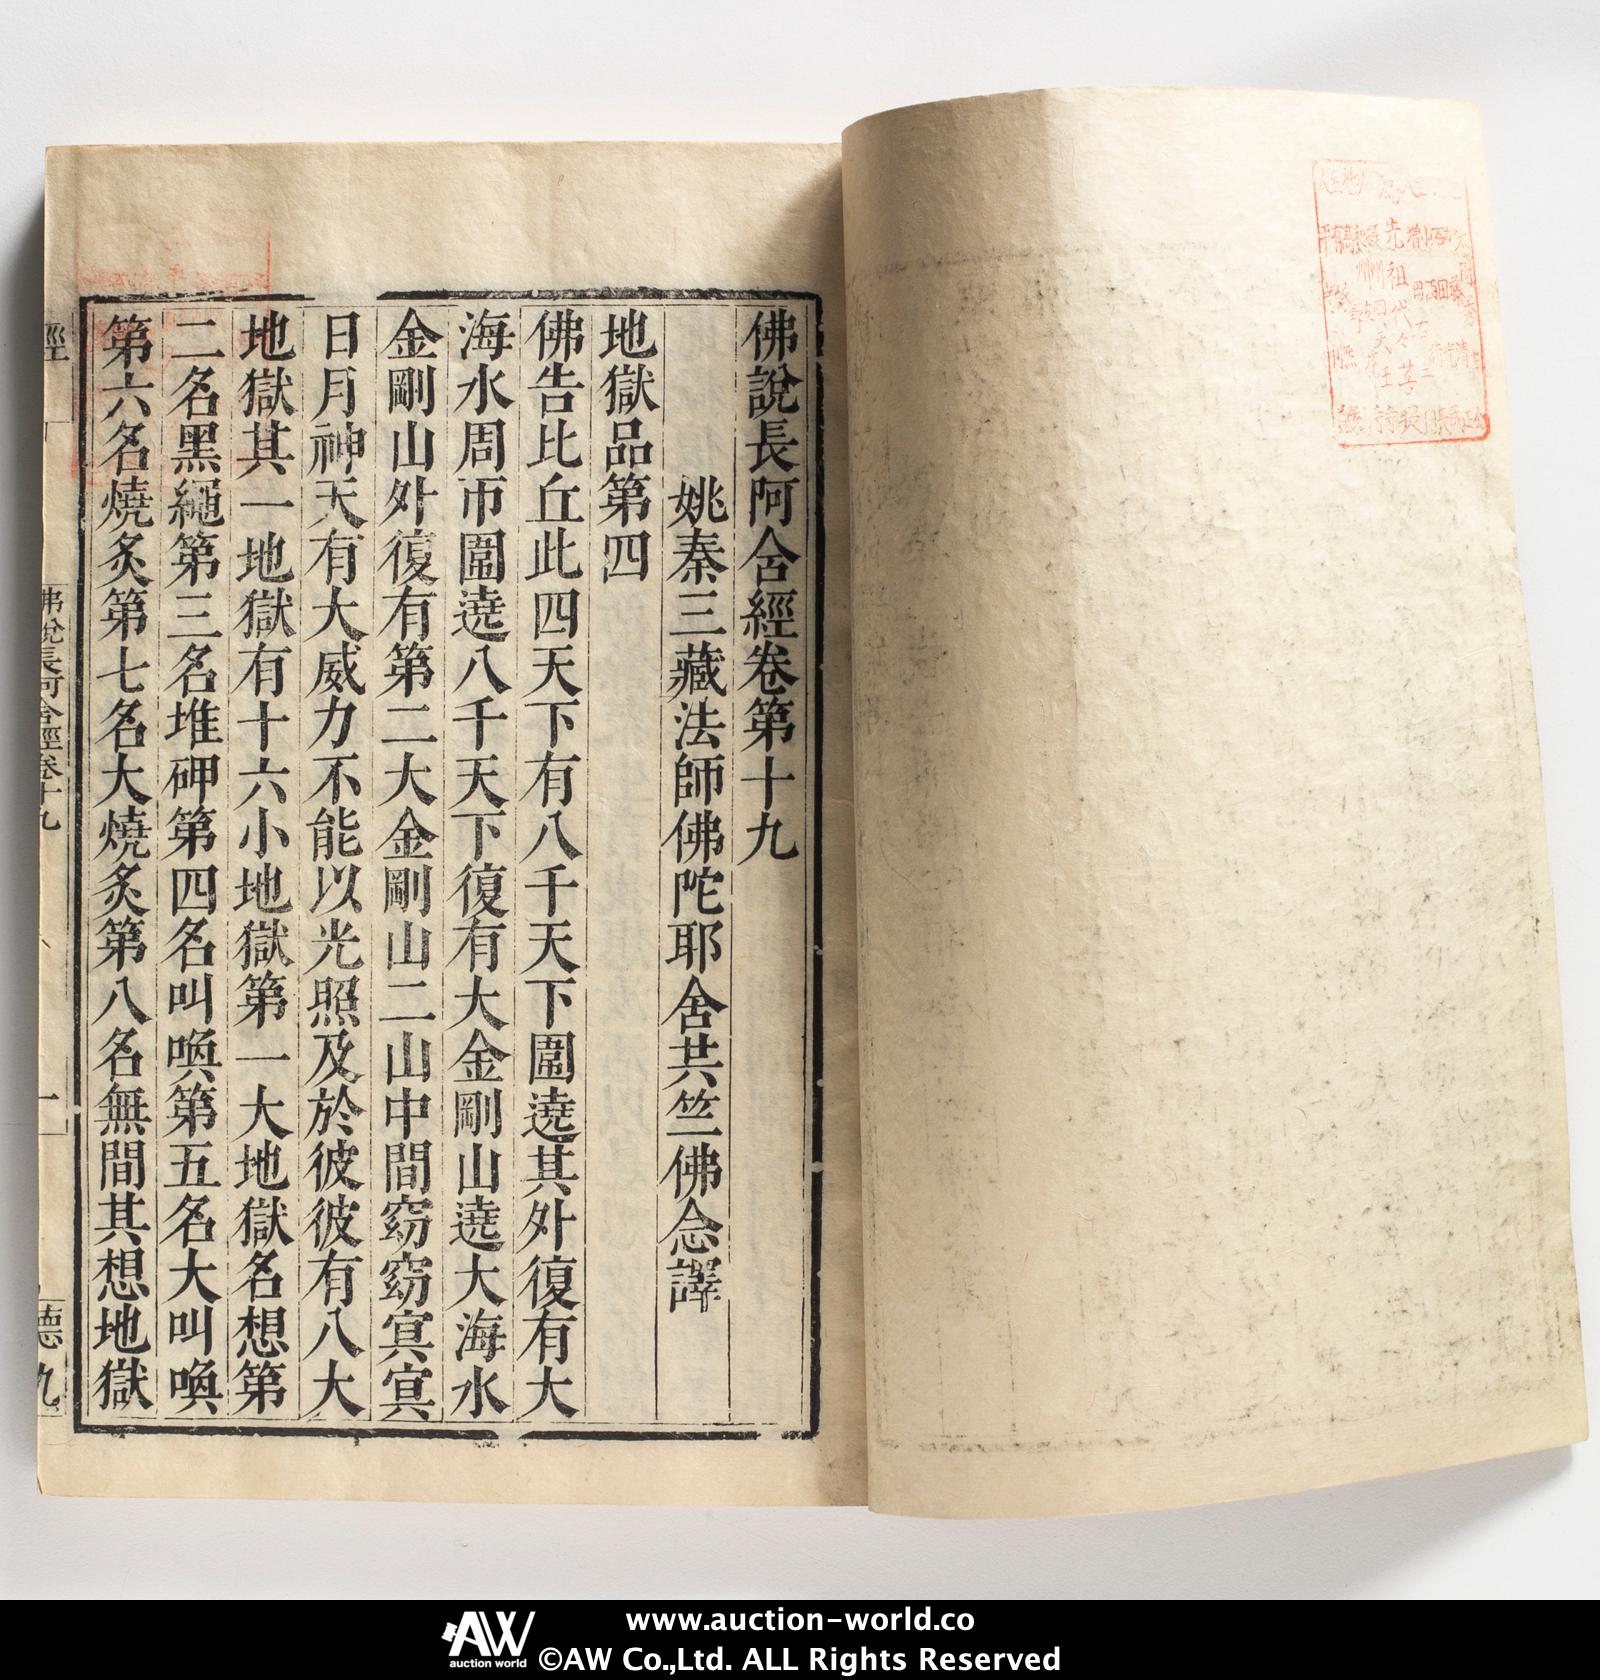 佛說長阿含經卷第十九
姚秦三藏法師佛陀耶舍共竺佛念譯
地獄品第四
佛告比丘此四天下有八千天下圍遶其外復有大
海水周帀圍遶八千天下復有大金剛山遶大海水
金剛山外復有第二大金剛山二山中間窈窈冥冥
日月神天有大威力不能以光照及於彼彼有八大
地獄其一地獄有十六小地獄第一大地獄名想第
二名黑繩第三名堆砷第四名叫喚第五名大叫喚
第六名燒炙第七名大燒炙第八名無間其想地獄
經
佛說長阿含經卷十九
一
德九
AW
auction world
www.auction-world.co
©AW Co.,Ltd. ALL Rights Reserved